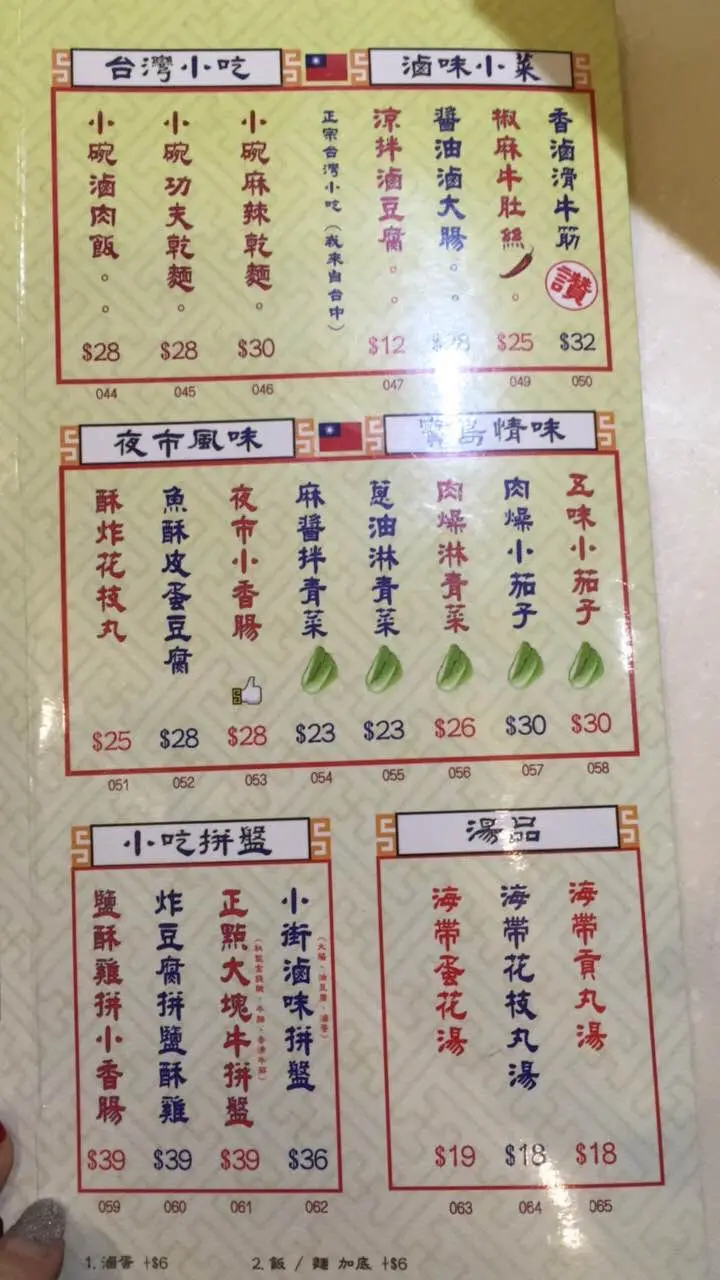 滷味小菜
香滷滑牛筋
讚
$32
050
椒麻牛肚絲。
$25
049
醬油滷大腸。。
涼拌滷豆腐。。
$12
047
台灣小吃
正宗台灣小吃（我來自台中）
小碗麻辣乾麵。
$30
046
小碗功夫乾麵。
$28
045
小碗滷肉飯。。
$28
044
寶島情味
五味小茄子
$30
058
肉燥小茄子
$30
057
肉燥淋青菜
$26
056
蔥油淋青菜
$23
055
夜市風味
麻醬拌青菜
$23
054
夜市小香腸
$28
053
魚酥皮蛋豆腐
$28
052
酥炸花枝丸
$25
051
湯品
海帶貢丸湯
$18
065
海帶花枝丸湯
$18
064
海帶蛋花湯
$19
063
小吃拼盤
小街滷味拼盤
(大腸、油豆腐、滷蛋)
$36
062
正點大塊牛拼盤
$39
061
炸豆腐拼鹽酥雞
$39
060
鹽酥雞拼小香腸
$39
059
1. 滷蛋 +$6
2. 飯 / 麵 加底 +$6